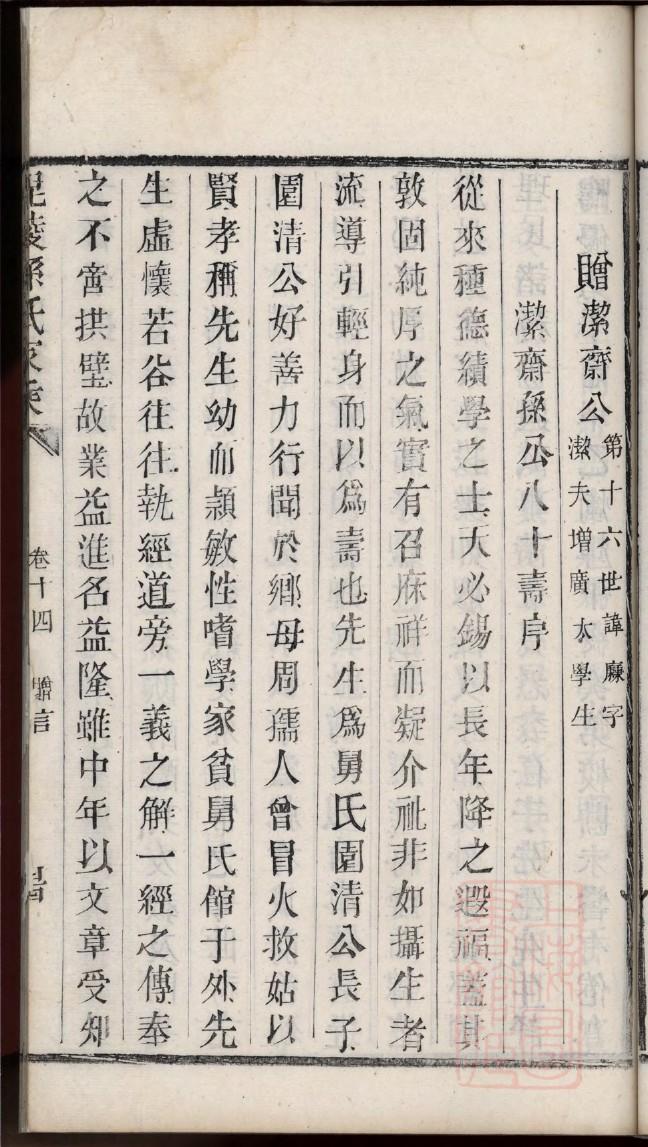 贈潔齋公第十六世諱廉字
潔夫增廣太學生
潔齋孫公八十壽序
從來種德績學之士天必錫以長年降之遐福蓋其
敦固純厚之氣實有召庥祥而凝介祉非如攝生者
流導引輕身而以爲壽也先生爲舅氏園清公長子
園清公好善力行聞於鄉母周孺人曾冒火救姑以
賢孝稱先生幼而穎敏性嗜學家貧舅氏館于外先
生虛懷若谷往往執經道旁一義之解一經之傳奉
之不啻拱璧故業益進名益隆雖中年以文章受知
毘陵孫氏家乘
卷十四
贈言